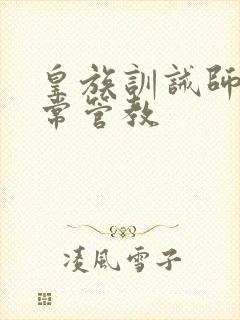 皇族訓誡師
常管教
凌風雪子